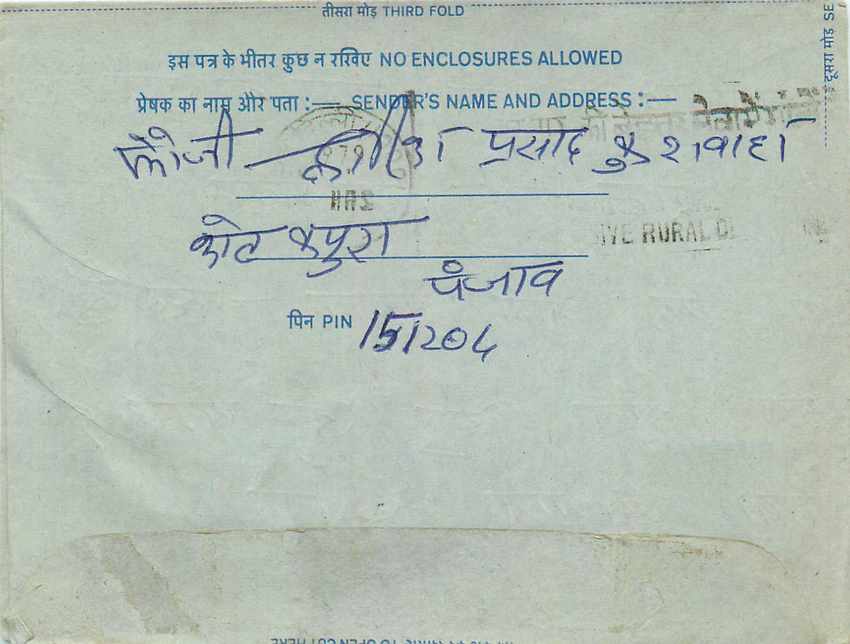 तीसरा मोड़ THIRD FOLD
दूसरा मोड़ SE
इस पत्र के भीतर कुछ न रखिए NO ENCLOSURES ALLOWED
प्रेषक का नाम और पता :— SENDER'S NAME AND ADDRESS :—
फौजी — प्रसाद कुशवाहा
कोट कपुरा
पंजाव
RURAL
पिन PIN 151204
TO OPEN CUT HERE